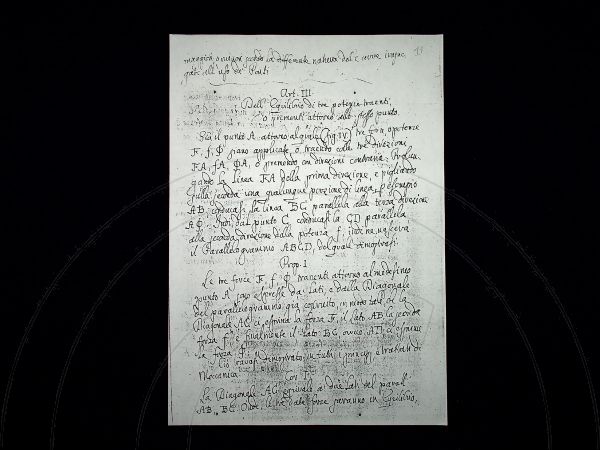 maggior o minor secondo la differente natura del
gate all'uso de' Ponti
19
Art. III.
Dell'Equilibrio di tre potenze traenti,
o prementi attorno allo stesso punto.
Sia il punto A attorno al quale (fig. IV) tre forze o potenze
F, f, Φ siano applicate, o traendo colle tre direzioni
FA, fA, ΦA, o premendo con direzioni contrarie. Prolun-
gando la linea FA della prima direzione, e pigliando
sulla seconda una qualunque porzione di linea, per esempio
AB, conducasi la linea BC parallela alla terza direzione
AΦ. Indi dal punto C conducasi la CD parallela
alla seconda direzione della potenza f; indi ne nascerà
il Parallelogrammo ABCD, del quale
Prop. I
Le tre forze F, f, Φ traenti attorno al medesimo
punto A sono espresse da' Lati, e dalla Diagonale
del parallelogrammo già costruito, in modo tale che la
Diagonale AC ci esprima la forza F, il lato AB la seconda
forza f, e finalmente il lato BC, ovvero AD ci esprime
la forza Φ.
Ciò trovasi dimostrato in tutti i principj e trattati di
Meccanica
Cor. I
La Diagonale AC equivale ai due Lati del parall.
AB, BC. Onde le tre date forze saranno in Equilibrio,